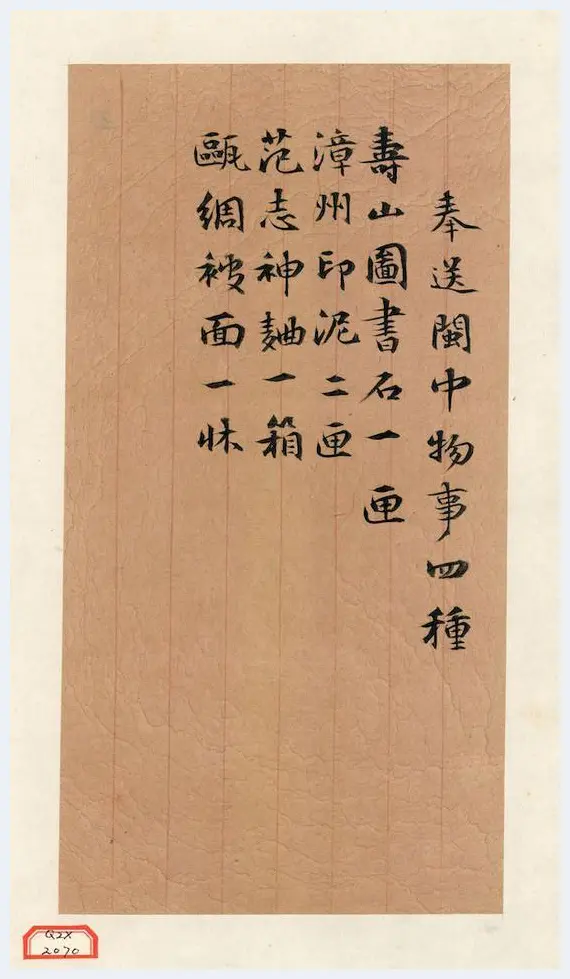 奉送閩中物事四種
壽山圖書石一匣
漳州印泥二匣
范志神麯一箱
甌綢被面一牀
QZX
2070